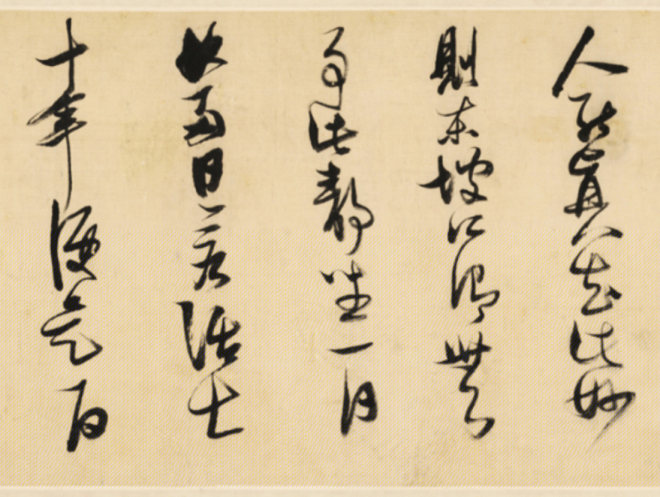 人能真知此妙
則東坡所謂無
事此靜坐一日
如兩日若活七
十年便是百